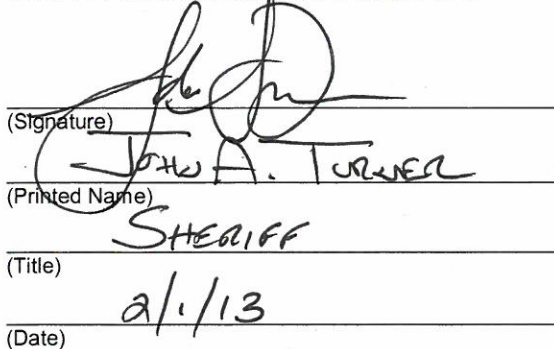 (Signature)
John A. Turner
(Printed Name)
Sheriff
(Title)
2/1/13
(Date)